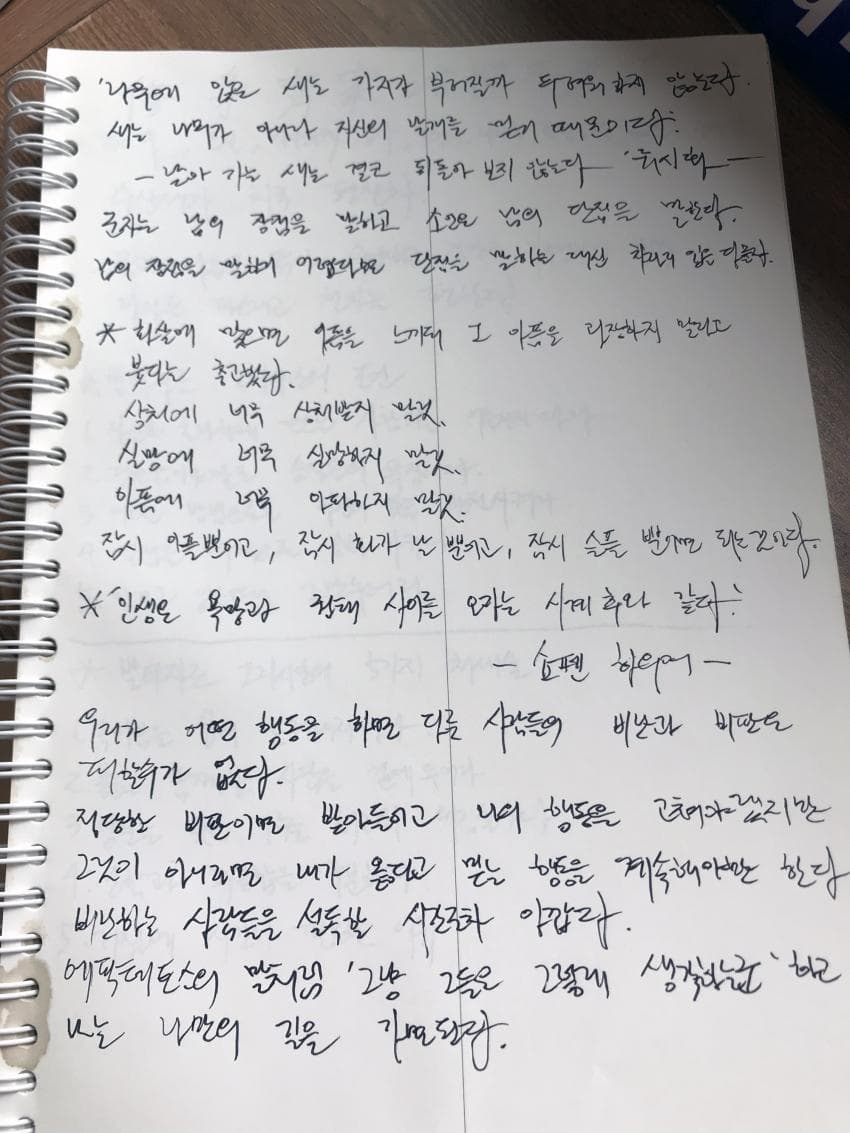 '나무에 앉은 새는 가지가 부러질까 두려워하지 않는다.
새는 나무가 아니라 자신의 날개를 믿기 때문이다.'
- 날아 가는 새는 결코 뒤돌아 보지 않는다 - '류시화 -
군자는 남의 장점을 말하고 소인은 남의 단점을 말한다.
남의 장점을 말하기 어렵다면 단점을 말하는 대신 차라리 입을 다물라.
* 화살에 맞으면 아픔을 느끼되 그 아픔을 과장하지 말라고
붓다는 충고했다.
상처에 너무 상처받지 말것.
실망에 너무 실망하지 말것.
아픔에 너무 아파하지 말것.
잠시 아플뿐이고, 잠시 화가 날 뿐이고, 잠시 슬플 뿐이면 되는것이다.
* '인생은 욕망과 권태 사이를 오가는 시계추와 같다.'
- 쇼펜 하우어 -
우리가 어떤 행동을 하면 다른 사람들의 비난과 비판을
피할수가 없다.
정당한 비판이면 받아들이고 나의 행동을 고쳐야겠지만
그것이 아니라면 내가 옳다고 믿는 행동을 계속해야만 한다
비난하는 사람들을 설득할 시간조차 아깝다.
에픽테토스의 말처럼 '그냥 그들은 그렇게 생각하는군' 하고
나는 나만의 길을 가면된다.